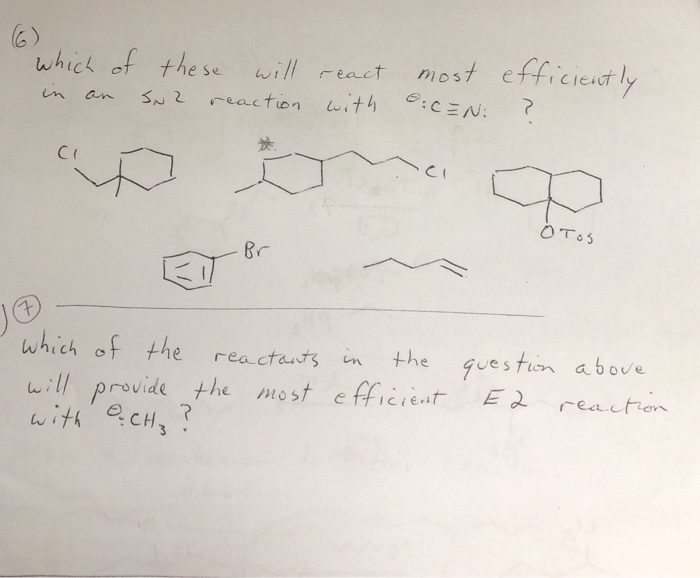 (6)
Which of these will react most efficiently
in an SN2 reaction with ⊖:C≡N: ?
Cl
*
Cl
OTos
Br
) (7)
Which of the reactants in the question above
will provide the most efficient E2 reaction
with ⊖:CH3 ?